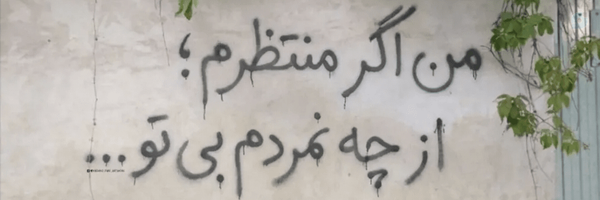 من اگر منتظرم؛
از چه نمردم بی تو...